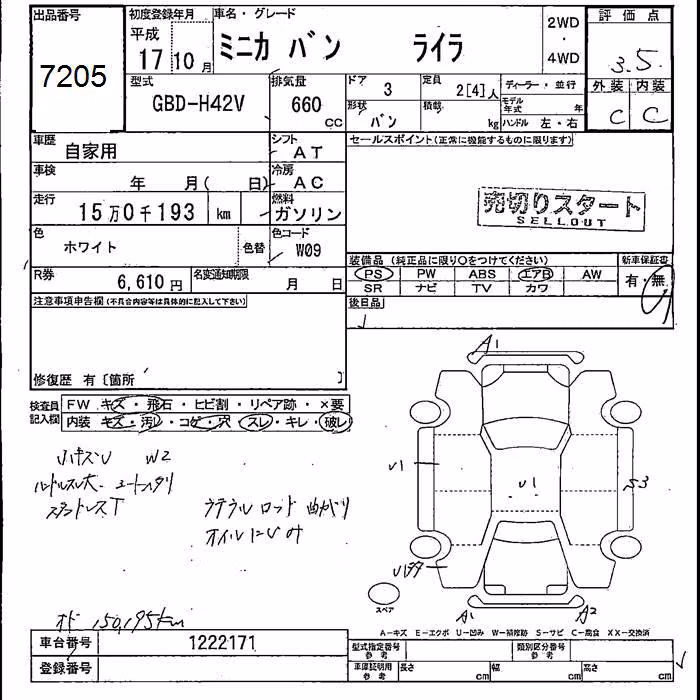 出品番号 初度登録年月 車名・グレード 評価点
7205 平成 17年 10月 ミニカ バン ライラ 2WD・4WD 3.5
型式 GBD-H42V 排気量 660 CC ドア 3 定員 2[4]人 ディーラー・並行 外装 内装
形状 バン 積載 kg モデル年式 年 ハンドル 左・右 C C
車歴 自家用 シフト AT セールスポイント(正常に機能するものに限ります)
車検 年 月( 日) 冷房 AC
走行 15万0千193 km 燃料 ガソリン 売切りスタート
SELLOUT
色 ホワイト 色替 色コード W09
装備品(純正品に限り○をつけてください) 新車保証書
R券 6,610円 名変通知期限 月 日 PS PW ABS エアB AW 有・無
SR ナビ TV カワ
注意事項申告欄(不具合内容等は具体的に記入して下さい) 後日品
修復歴 有〔箇所 〕
検査員記入欄 FW キズ・飛石・ヒビ割・リペア跡・×要
内装 キズ・汚レ・コゲ・穴・スレ・キレ・破レ
小キズU W2
ハンドルスレ大
スタッドレスT
ロッド曲がり
オイルにじみ
A1
U1 U1 S3
A1 A2
スペア
150,195km
A-キズ E-エクボ U-凹み W-補修跡 S-サビ C-腐食 XX-交換済
車台番号 1222171 型式指定番号 参考 類別区分番号 参考
登録番号 車庫証明用 参考 長さ cm 幅 cm 高さ cm